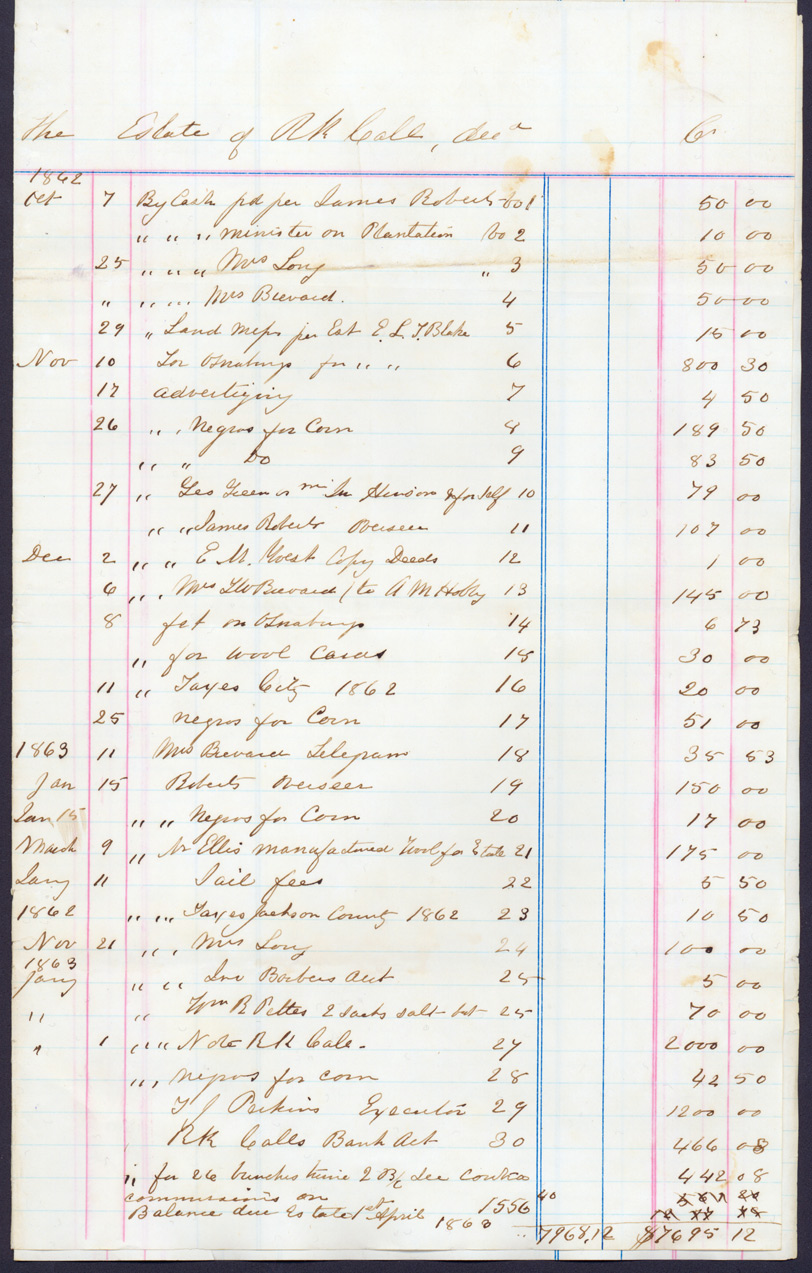 The Estate of RK Call, decd Cr
1862
Oct 7 By Cash pd per James Roberts vo 1 50 00
" " " minister on Plantation vo 2 10 00
25 " " " Mrs Long " 3 50 00
" " " " Mrs Brevard. 4 50 00
29 " Land Maps per Est E. L. T. Blake 5 15 00
Nov 10 For Osnaburgs for " " 6 800 30
17 advertizing 7 4 50
26 " " Negros for Corn 8 189 50
" " Do 9 83 50
27 " Geo Green or for self 10 79 00
" " James Roberts Overseer 11 107 00
Dec 2 " " E M. West Copy Deeds 12 1 00
6 " " Mrs T W Brevard (to A M Hobby 13 145 00
8 frt on Osnaburgs 14 6 73
" for wool Cards 15 30 00
11 " Taxes City 1862 16 20 00
25 negros for Corn 17 51 00
1863 11 Mrs Brevard Telegram 18 35 53
Jan 15 Roberts Overseer 19 150 00
Jan 15 " " Negros for Corn 20 17 00
March 9 " Mr Ellis manufactured Wool for Estate 21 175 00
Jany 11 Jail fees 22 5 50
1862 " " " Taxes Jackson County 1862 23 10 50
Nov 21 " " " Mrs Long 24 100 00
1863
Jany " " " Jno Barbers Acct 25 5 00
" " Wm R Pettes 2 sacks salt 25 70 00
" 1 " " " Note RK Call - 27 2000 00
" " " negros for corn 28 42 50
T J Perkins Executor 29 1200 00
RK Calls Bank Act 30 466 08
" for 26 bunches twine 2 B/C 442 08
commissions on
Balance due Estate 1st April 1863 1556 40
7968,12 $7695 12